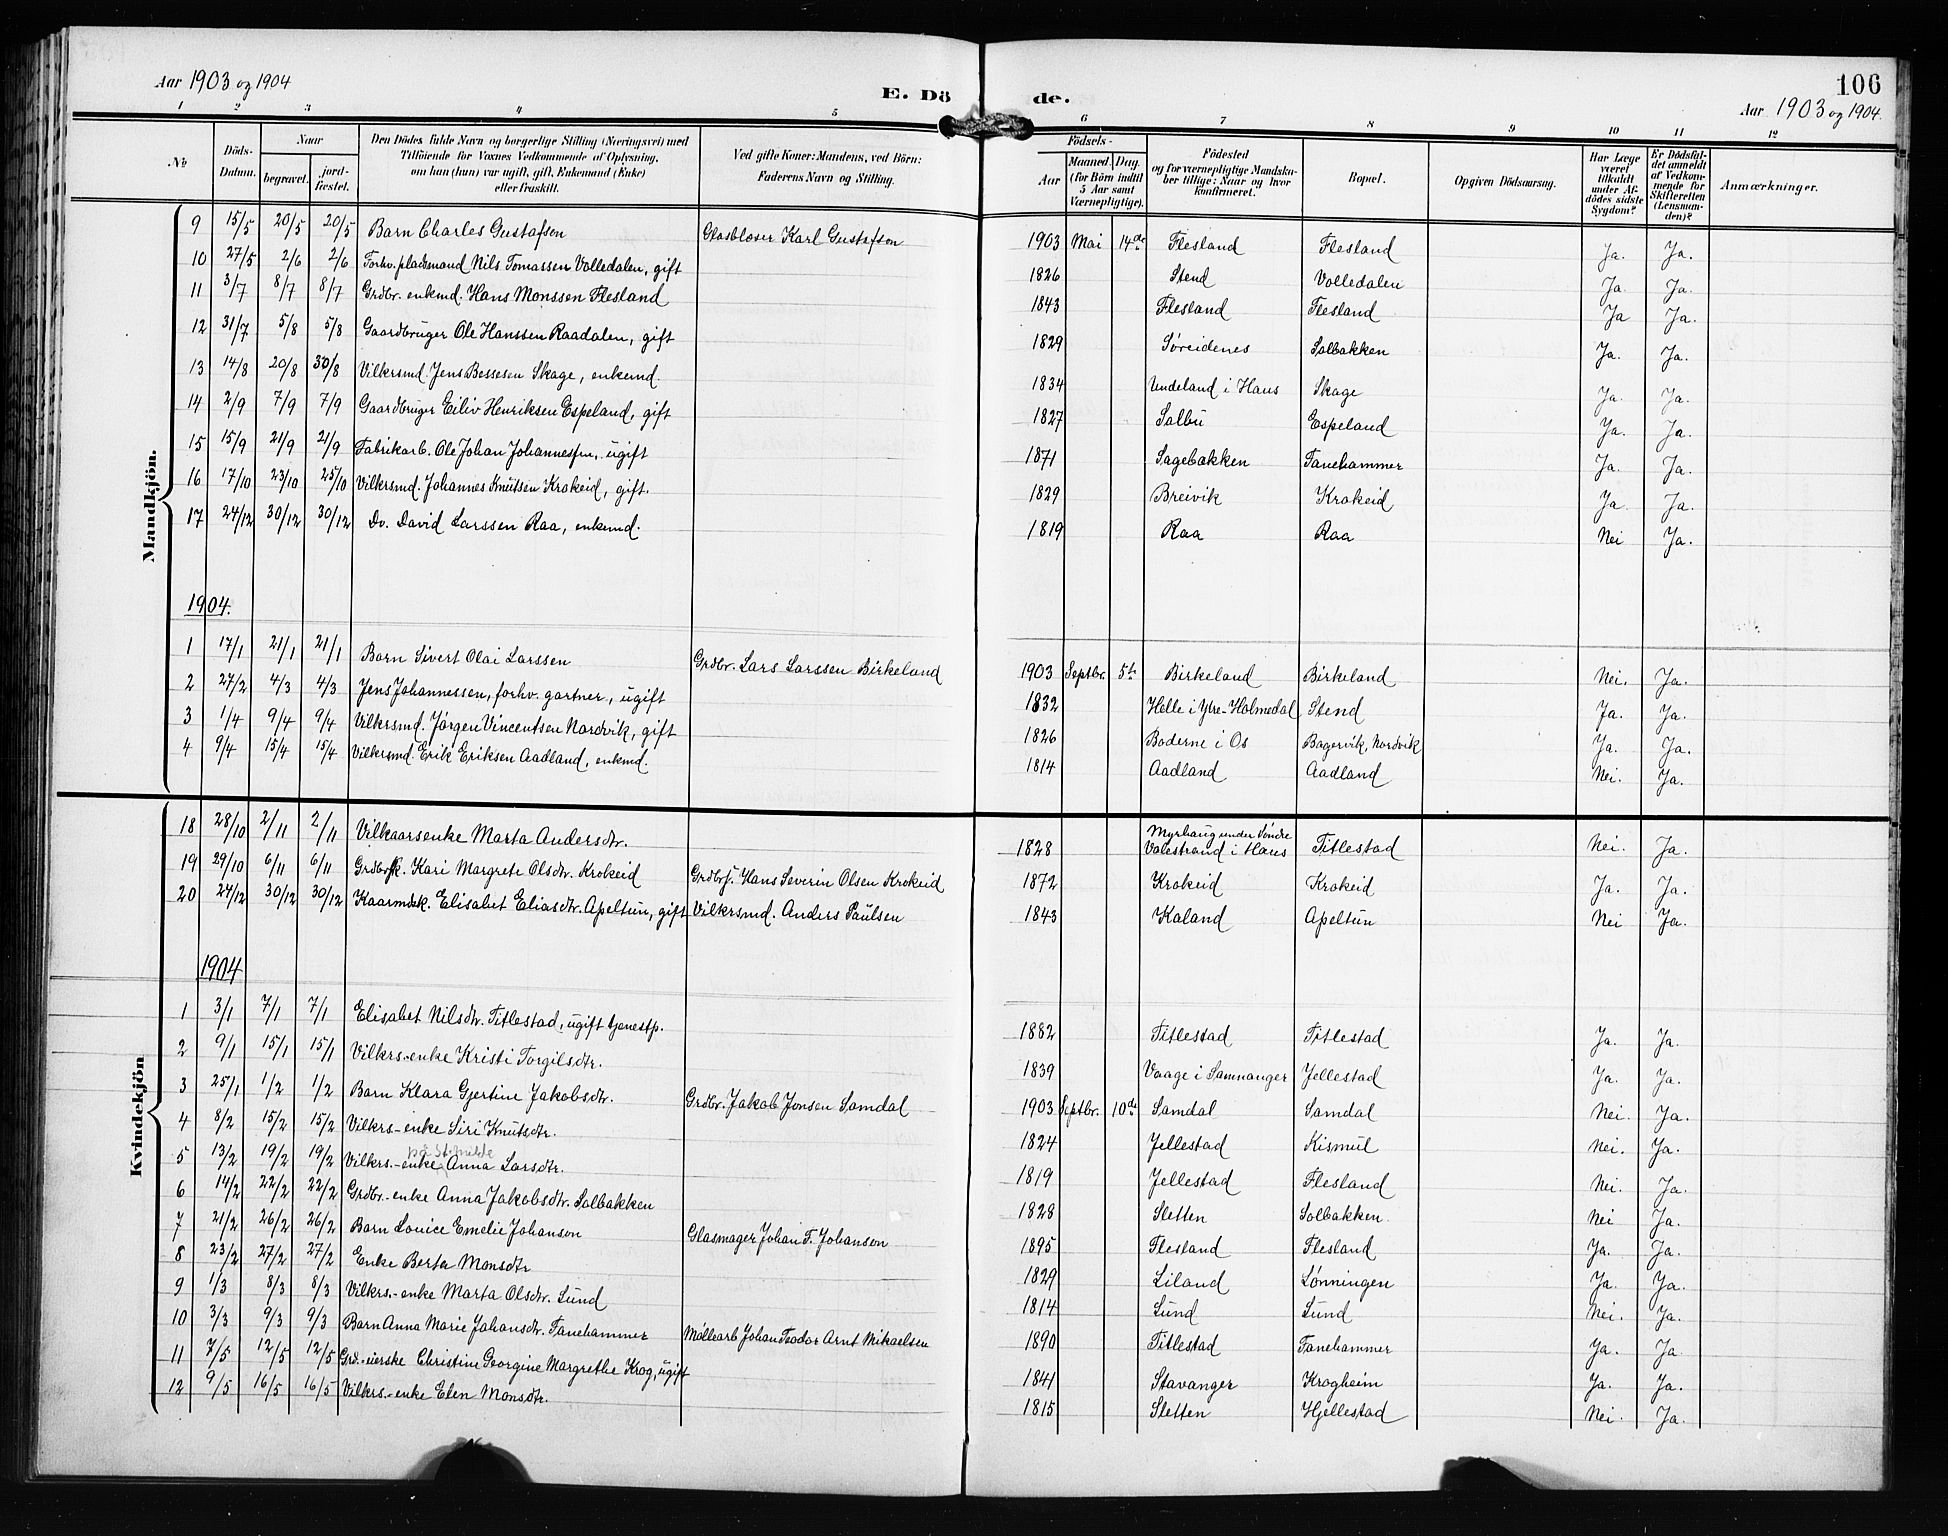 Aar 1903 og 1904
E. Dö de.
106
Aar 1903 og 1904.
1 2 3 4 5 6 7 8 9 10 11 12
No
Döds-Datum.
Naar
begravet.
jord-fæstet.
Den Dödes fulde Navn og borgerlige Stilling (Næringsvei) med Tilföiende for Voxnes Vedkommende af Oplysning, om han (hun) var ugift, gift, Enkemand (Enke) eller fraskilt.
Ved gifte Koner: Mandens, ved Börn: Faderens Navn og Stilling.
Födsels-
Aar
Maaned. Dag.
(for Börn indtil 5 Aar samt Værnepligtige).
Födested og for værnepligtige Mandskaber tillige: Naar og hvor konfirmeret.
Bopæl.
Opgiven Dödsaarsag.
Har Læge været tilkaldt under Afdödes sidste Sygdom?
Er Dödsfaldet anmeldt af Vedkommende for Skifteretten (Lensmanden)?
Anmærkninger.
Mandkjön.
9 15/5 20/5 20/5 Barn Charles Gustafsen Glasblæser Karl Gustafsen 1903 Mai 14de Flesland Flesland Ja. Ja.
10 27/5 2/6 2/6 Forhv. pladsmand Nils Tomassen Volledalen, gift 1826 Stend Volledalen Ja. Ja.
11 3/7 8/7 8/7 Grdbr. enkmd. Hans Monssen Flesland 1843 Flesland Flesland Ja Ja.
12 31/7 5/8 5/8 Gaardbruger Ole Hanssen Raadalen, gift 1829 Søreidenes Solbakken Ja. Ja.
13 14/8 20/8 30/8 Vilkersmd. Jens Bessesen Skage, enkemd. 1834 Undeland i Haus Skage Ja. Ja.
14 2/9 7/9 7/9 Gaardbruger Eiliv Henriksen Espeland, gift 1827 Salbu Espeland Ja. Ja.
15 15/9 21/9 21/9 Fabrikarb. Ole Johan Johannessen, ugift 1871 Sagebakken Fanehammer Ja. Ja.
16 17/10 23/10 25/10 Vilkersmd. Johannes Knutsen Krokeid, gift. 1829 Breivik Krokeid Ja. Ja.
17 24/12 30/12 30/12 Do. David Larssen Raa, enkemd. 1819 Raa Raa Nei Ja.
1904.
1 17/1 21/1 21/1 Barn Sivert Olai Larssen Grdbr. Lars Larssen Birkeland 1903 Septbr. 5te Birkeland Birkeland Nei. Ja.
2 27/2 4/3 4/3 Jens Johannessen, forhv. gartner, ugift 1832 Helle i Ytre-Holmedal Stend Ja. Ja.
3 1/4 9/4 9/4 Vilkersmd. Jørgen Vincentsen Nordvik, gift 1826 Boderne i Os Bagervik, Nordvik Ja. Ja.
4 9/4 15/4 15/4 Vilkersmd. Erik Eriksen Aadland, enkmd. 1814 Aadland Aadland Nei. Ja.
Kvindekjön
18 28/10 2/11 2/11 Vilkaarsenke Marta Andersdtr. 1828 Myrhaug under Søndre Valestrand i Haus Titlestad Nei. Ja.
19 29/10 6/11 6/11 Grdbrsk. Kari Margrete Olsdtr. Krokeid Grdbr. Hans Severin Olsen Krokeid 1872 Krokeid Krokeid Ja. Ja.
20 24/12 30/12 30/12 Kaarmdsk. Elisabet Eliasdtr. Apeltun, gift Vilkersmd. Anders Paulsen 1843 Kaland Apeltun Nei Ja.
1904
1 3/1 7/1 7/1 Elisabet Nilsdtr. Titlestad, ugift tjenestp. 1882 Titlestad Titlestad Ja. Ja.
2 9/1 15/1 15/1 Vilkrs.-enke Kristi Torgilsdtr. 1839 Vaage i Samnanger Jellestad Ja. Ja.
3 25/1 1/2 1/2 Barn Klara Gjertine Jakobsdtr. Grdbr. Jakob Jonsen Samdal 1903 Septbr. 10de Samdal Samdal Nei. Ja.
4 8/2 15/2 15/2 Vilkrs-enke Siri Knutsdtr. 1824 Jellestad Kismul Nei. Ja.
på St. Milde
5 13/2 19/2 19/2 Vilkrs.-enke Anna Larsdtr. 1819 Jellestad Flesland Nei. Ja.
6 14/2 22/2 22/2 Grdbr.-enke Anna Jakobsdtr. Solbakken 1828 Sletten Solbakken. Nei Ja.
7 21/2 26/2 26/2 Barn Louice Emelie Johanson Glasmager Johan F. Johanson 1895 Flesland Flesland Ja. Ja.
8 23/2 27/2 27/2 Enke Berta Monsdtr 1829 Liland Lønningen Ja. Ja.
9 1/3 8/3 8/3 Vilkrs.-enke Marta Olsdtr. Lund 1814 Lund Lund Nei. Ja.
10 3/3 9/3 9/3 Barn Anna Marie Johansdtr. Fanehammer Møllearb Johan Teodor Arnt Mikaelsen 1890 Titlestad Fanehammer Ja. Ja.
11 7/5 12/5 12/5 Grd.-eierske Christine Georgine Margrethe Krog, ugift 1841 Stavanger Krogheim Ja. Ja.
12 9/5 16/5 16/5 Vilkrs.-enke Elen Monsdtr. 1815 Sletten Hjellestad Nei. Ja.